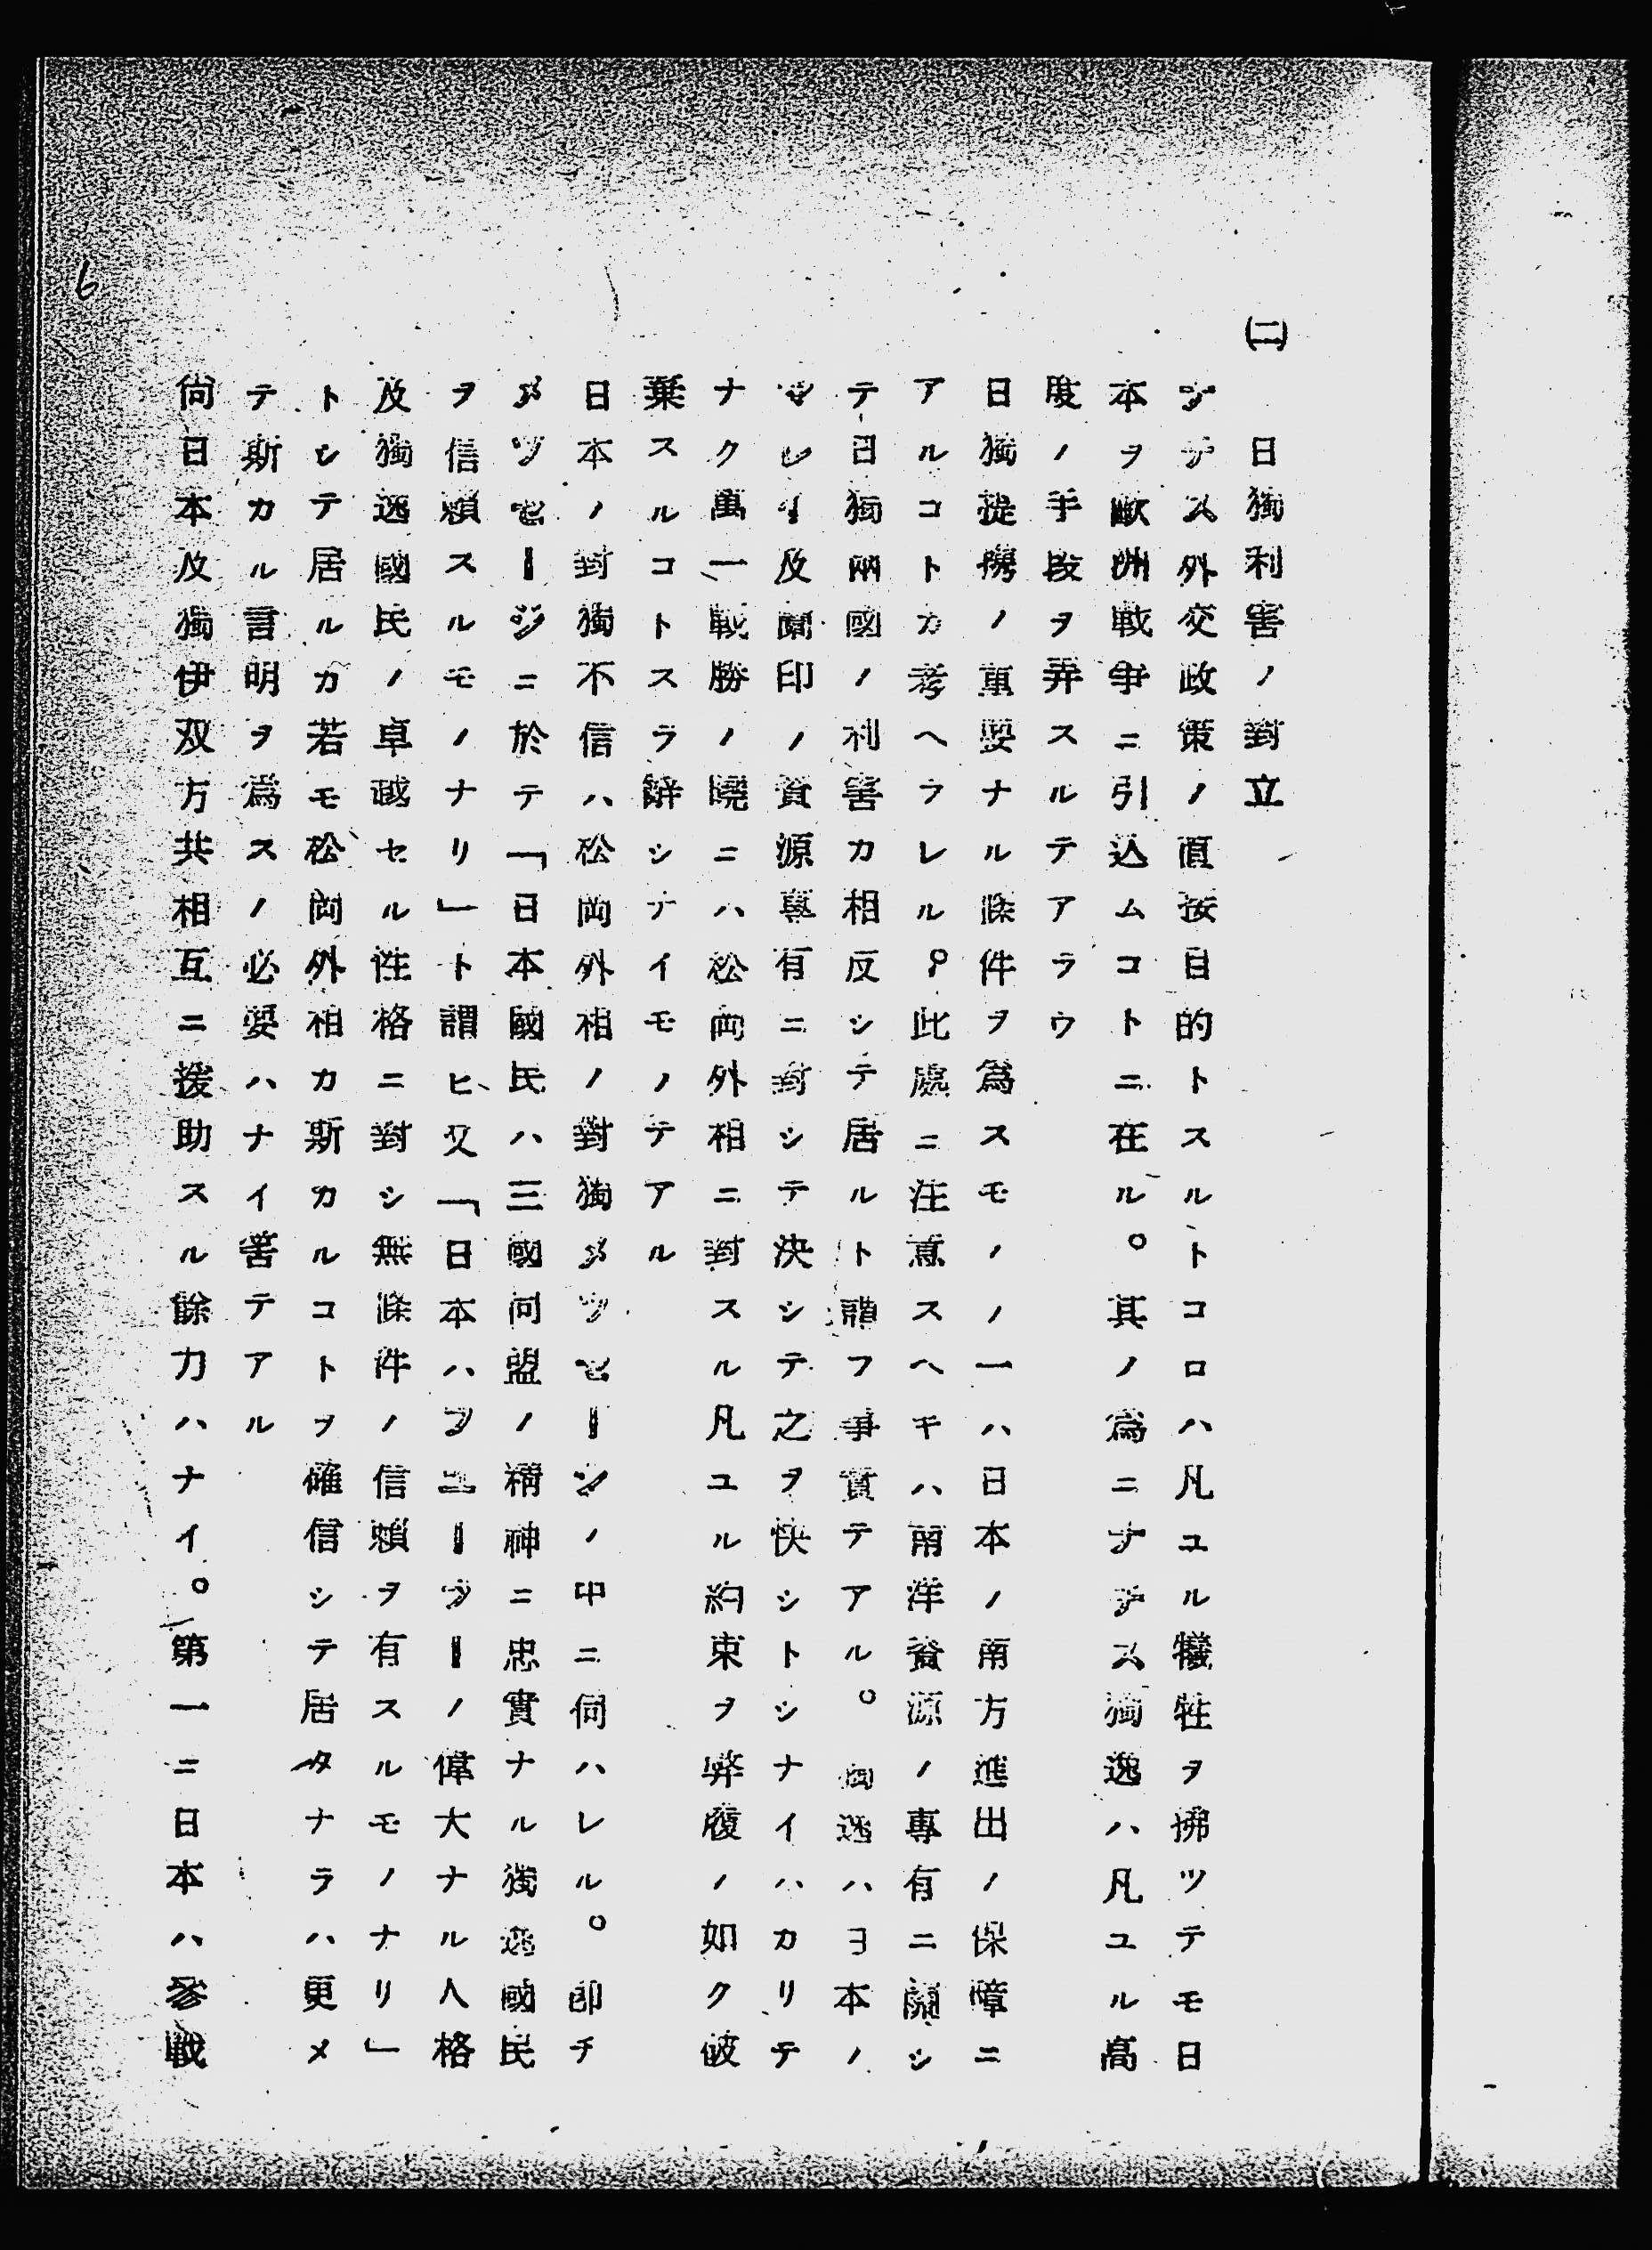 (二)　日獨利害ノ對立
ンデス外交政策ノ直接目的トスルトコロハ凡ユル犠牲ヲ拂ツテモ日
本ヲ歐洲戰爭ニ引込ムコトニ在ル。其ノ爲ニナチス獨逸ハ凡ユル高
度ノ手段ヲ弄スルテアラウ
日獨提携ノ重要ナル條件ヲ爲スモノノ一ハ日本ノ南方進出ノ保障ニ
アルコトカ考ヘラレル。此處ニ注意スヘキハ南洋資源ノ專有ニ關シ
テ日獨兩國ノ利害カ相反シテ居ルト謂フ事實テアル。獨逸ハ日本ノ
マレイ及蘭印ノ資源專有ニ對シテ決シテ之ヲ快シトシナイハカリテ
ナク萬一戰勝ノ曉ニハ松岡外相ニ對スル凡ユル約束ヲ弊履ノ如ク破
棄スルコトスラ辭シナイモノテアル
日本ノ對獨不信ハ松岡外相ノ對獨メツセージノ中ニ伺ハレル。卽チ
メツセージニ於テ「日本國民ハ三國同盟ノ精神ニ忠實ナル獨逸國民
ヲ信頼スルモノナリ」ト謂ヒ又「日本ハフユーラーノ偉大ナル人格
及獨逸國民ノ卓越セル性格ニ對シ無條件ノ信頼ヲ有スルモノナリ」
トシテ居ルカ若モ松岡外相カ斯カルコトヲ確信シテ居タナラハ更メ
テ斯カル言明ヲ爲スノ必要ハナイ筈テアル
尙日本及獨伊双方共相互ニ援助スル餘力ハナイ。第一ニ日本ハ參戰
6